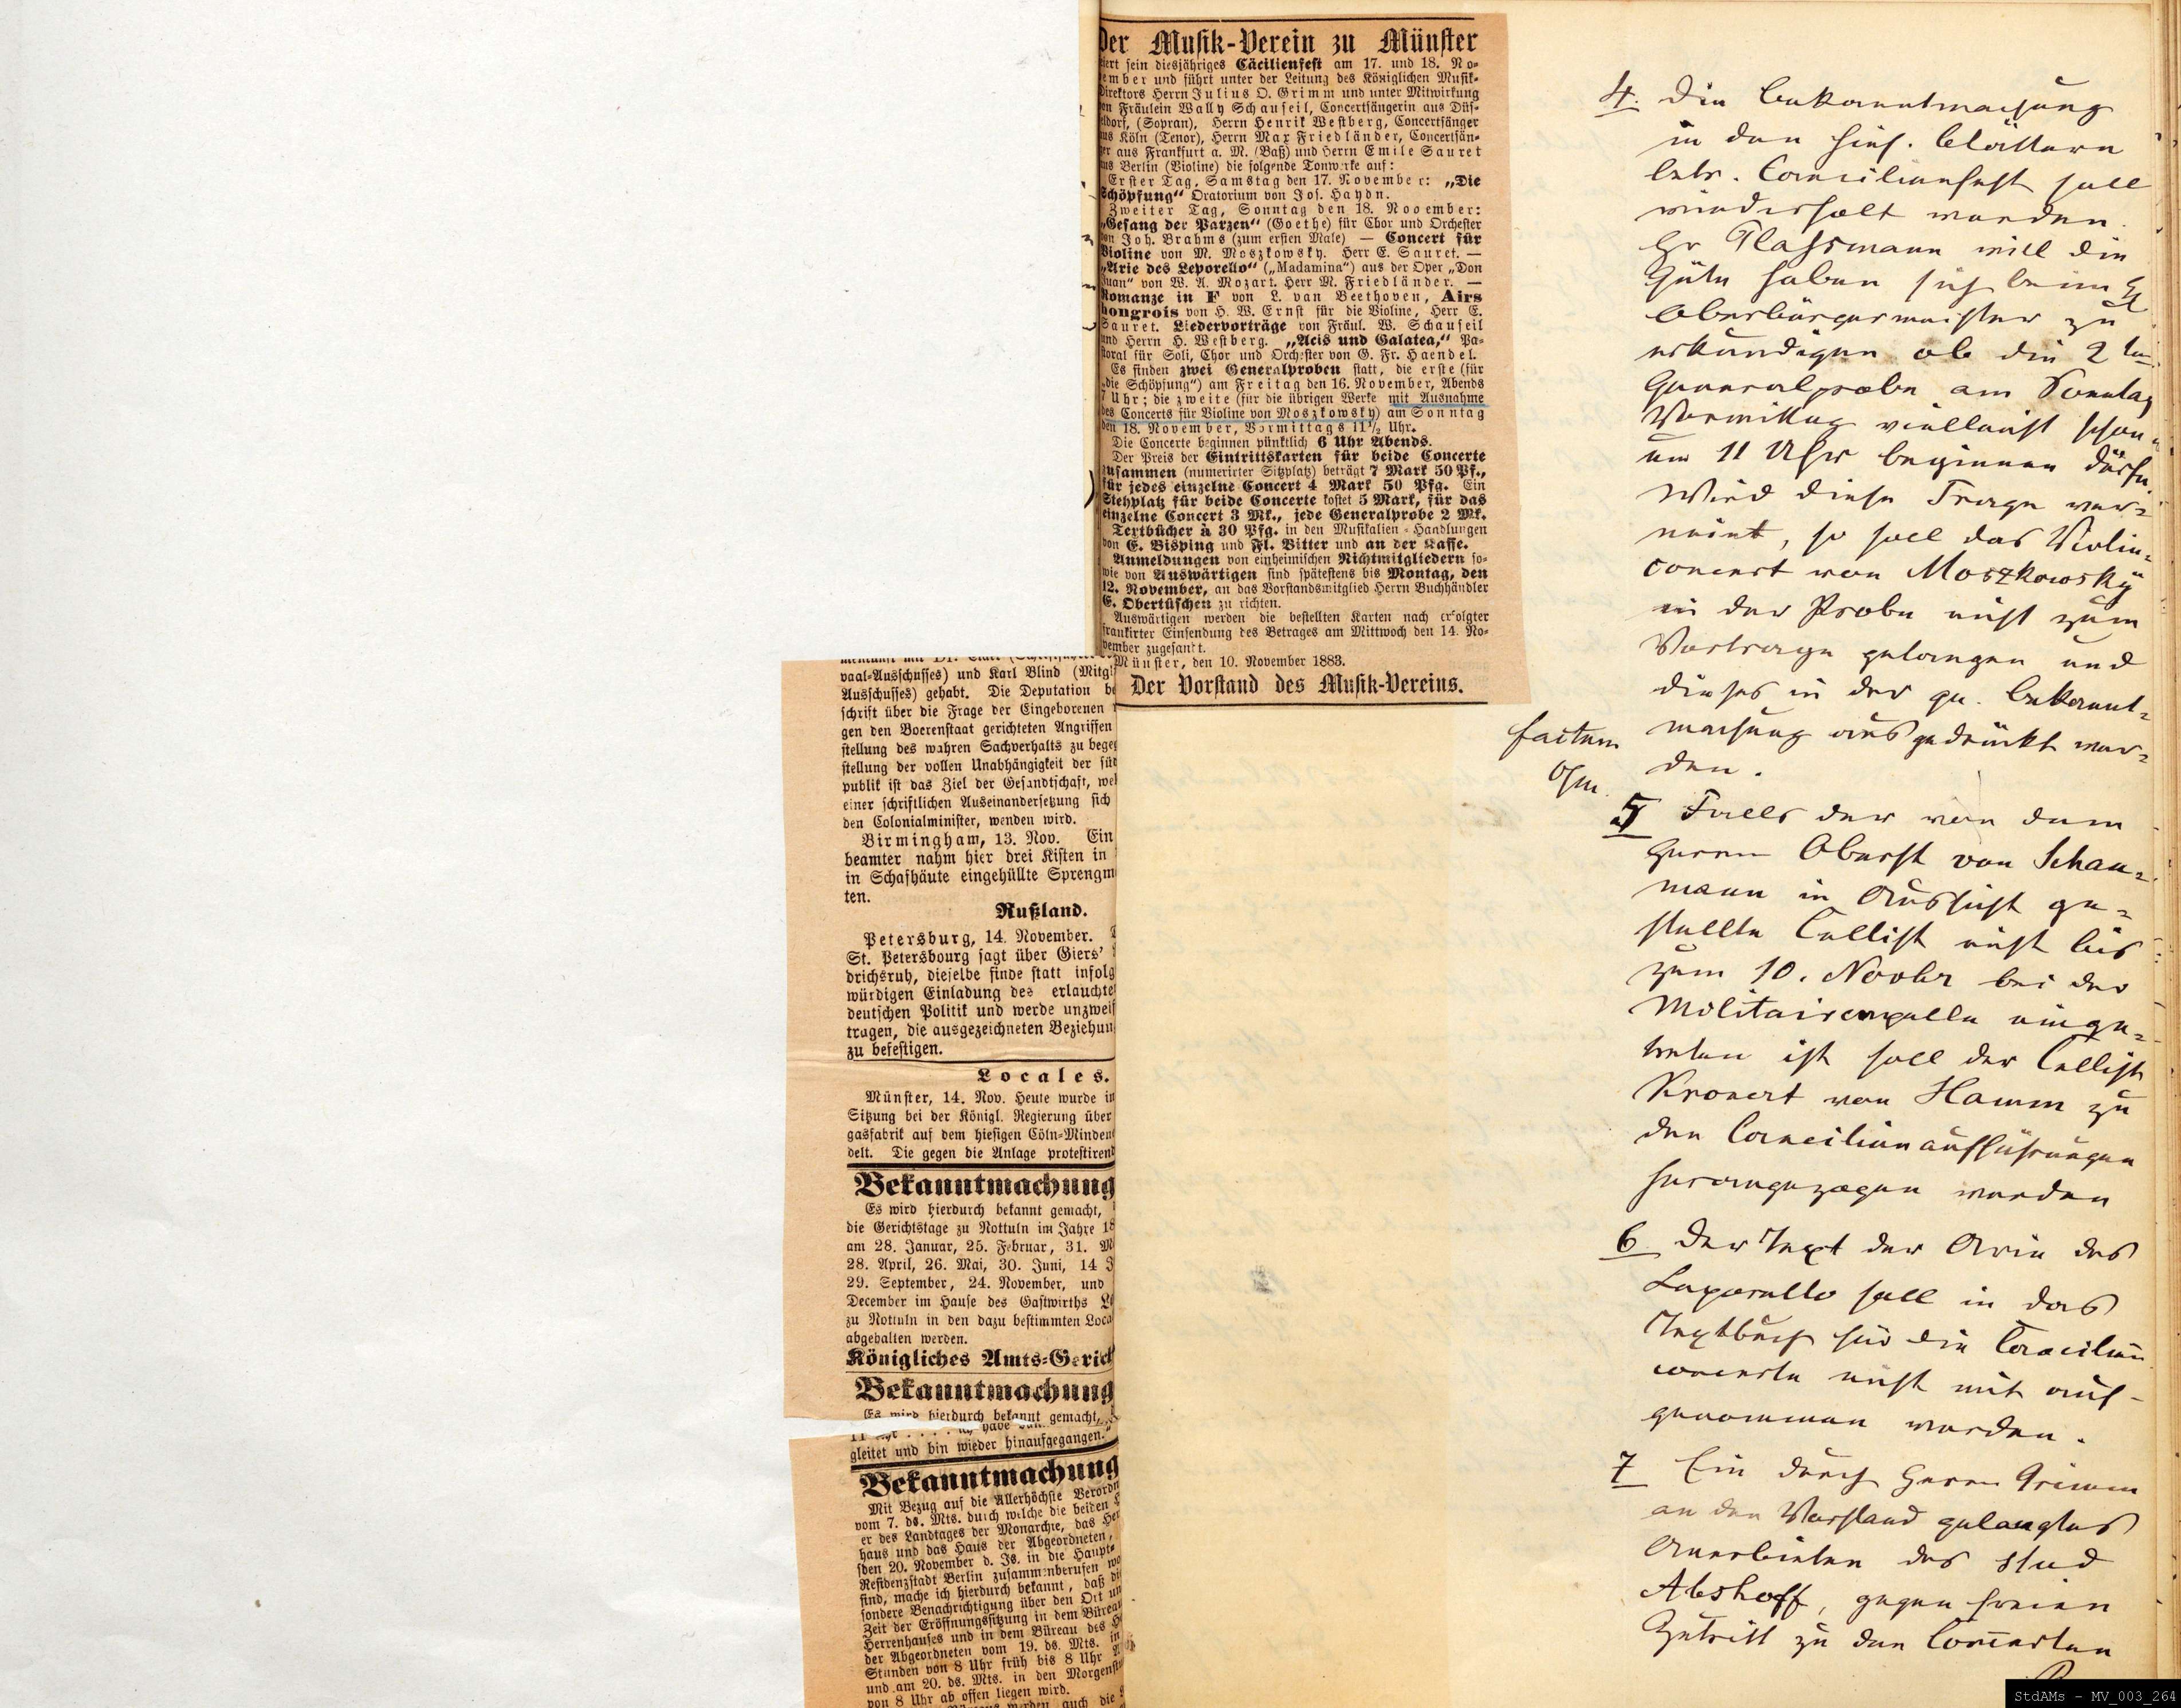 Der Musik-Verein zu Münster
iert sein diesjähriges Cäcilienfest am 17. und 18. No-
ember und führt unter der Leitung des Königlichen Musik-
Direktors Herrn Julius O. Grimm und unter Mitwirkung
on Fräulein Wally Schauseil, Concertsängerin aus Düs-
eldorf, (Sopran), Herrn Henrik Westberg, Concertsänger
us Köln (Tenor), Herrn Max Friedländer, Concertsän-
er aus Frankfurt a. M. (Baß) und Herrn Emile Sauret
us Berlin (Violine) die folgende Tonwerke auf:
Erster Tag, Samstag den 17. November: „Die
Schöpfung“ Oratorium von Jos. Haydn.
Zweiter Tag, Sonntag den 18. November:
„Gesang der Parzen“ (Goethe) für Chor und Orchester
von Joh. Brahms (zum ersten Male) — Concert für
Violine von M. Moszkowsky. Herr E. Sauret. —
„Arie des Leporello“ („Madamina“) aus der Oper „Don
Juan“ von W. A. Mozart. Herr M. Friedländer. —
Romanze in F von L. van Beethoven, Airs
hongrois von H. W. Ernst für die Violine, Herr E.
Sauret. Liedervorträge von Fräul. W. Schauseil
und Herrn H. Westberg. „Acis und Galatea,“ Pa-
storal für Soli, Chor und Orchester von G. Fr. Haendel.
Es finden zwei Generalproben statt, die erste (für
„die Schöpfung“) am Freitag den 16. November, Abends
7 Uhr; die zweite (für die übrigen Werke mit Ausnahme
des Concerts für Violine von Moszkowsky) am Sonntag
den 18. November, Vormittags 11½ Uhr.
Die Concerte beginnen pünktlich 6 Uhr Abends.
Der Preis der Eintrittskarten für beide Concerte
zusammen (numerirter Sitzplatz) beträgt 7 Mark 50 Pf.,
für jedes einzelne Concert 4 Mark 50 Pfg. Ein
Stehplatz für beide Concerte kostet 5 Mark, für das
einzelne Concert 3 Mk., jede Generalprobe 2 Mk.
Textbücher à 30 Pfg. in den Musikalien-Handlungen
von E. Bisping und Fl. Bitter und an der Kasse.
Anmeldungen von einheimischen Nichtmitgliedern so-
wie von Auswärtigen sind spätestens bis Montag, den
12. November, an das Vorstandsmitglied Herrn Buchhändler
E. Obertüschen zu richten.
Auswärtigen werden die bestellten Karten nach erfolgter
frankirter Einsendung des Betrages am Mittwoch den 14. No-
vember zugesandt.
Münster, den 10. November 1883.
Der Vorstand des Musik-Vereins.
vaal-Ausschusses) und Karl Blind (Mitgl
Ausschusses) gehabt. Die Deputation be
schrift über die Frage der Eingeborenen
gen den Boerenstaat gerichteten Angriffen
stellung des wahren Sachverhalts zu bege
stellung der vollen Unabhängigkeit der süd
publik ist das Ziel der Gesandtschaft, wel
einer schriftlichen Auseinandersetzung sich
den Colonialminister, wenden wird.
Birmingham, 13. Nov. Ein
beamter nahm hier drei Kisten in
in Schafhäute eingehüllte Sprengm
ten.
Rußland.
Petersburg, 14. November.
St. Petersbourg sagt über Giers'
drichsruh, dieselbe finde statt infolg
würdigen Einladung des erlauchte
deutschen Politik und werde unzweif
tragen, die ausgezeichneten Beziehun
zu befestigen.
Locales.
Münster, 14. Nov. Heute wurde in
Sitzung bei der Königl. Regierung über
gasfabrik auf dem hiesigen Cöln-Minden
delt. Die gegen die Anlage protestirend
Bekanntmachung
Es wird hierdurch bekannt gemacht,
die Gerichtstage zu Nottuln im Jahre 18
am 28. Januar, 25. Februar, 31. M
28. April, 26. Mai, 30. Juni, 14 J
29. September, 24. November, und
December im Hause des Gastwirths
zu Nottuln in den dazu bestimmten Loca
abgehalten werden.
Königliches Amts-Gerich
Bekanntmachung
Es wird hierdurch bekannt gemacht,
gleitet und bin wieder hinaufgegangen.“
Bekanntmachung
Mit Bezug auf die Allerhöchste Verordn
vom 7. ds. Mts. durch welche die beiden
er des Landtages der Monarchie, das Her
haus und das Haus der Abgeordneten,
den 20. November d. Js. in die Haupt-
Residenzstadt Berlin zusammenberufen wo
sind, mache ich hierdurch bekannt, daß di
sondere Benachrichtigung über den Ort un
Zeit der Eröffnungssitzung in dem Büreau
Herrenhauses und in dem Büreau des H
der Abgeordneten vom 19. ds. Mts. in
Stunden von 8 Uhr früh bis 8 Uhr
und am 20. ds. Mts. in den Morgenst
von 8 Uhr ab offen liegen wird.
4. Die Bekanntmachung
in den hies. Blättern
betr. Caecilienfest soll
wiederholt werden.
Hr Plassmann will die
Güte haben sich beim H
Oberbürgermeister zu
erkundigen ob die 2te
Generalprobe am Sonntag
Vormittag vielleicht schon
um 11 Uhr beginnen dürfe.
Wird diese Frage ver-
neint, so soll das Violin-
concert von Moszkowsky
in der Probe nicht zum
Vortrage gelangen und
dieses in der qu. Bekannt-
machung ausgedrückt wer-
den.
factum
5 Falls der von dem
Herrn Oberst von Schau-
mann in Aussicht ge-
stellte Cellist nicht bis
zum 10. Novbr bei der
Militaircapelle einge-
treten ist soll der Cellist
Kronert von Hamm zu
den Caecilienaufführungen
herangezogen werden
6 Der Text der Arie des
Leporello soll in das
Textbuch für die Caecilien
concerte nicht mit auf-
genommen werden.
7 Ein durch Herrn Grimm
an den Vorstand gelangtes
Anerbieten des stud
Abshoff, gegen freien
Zutritt zu den Concerten
StdAMs - MV_003_264